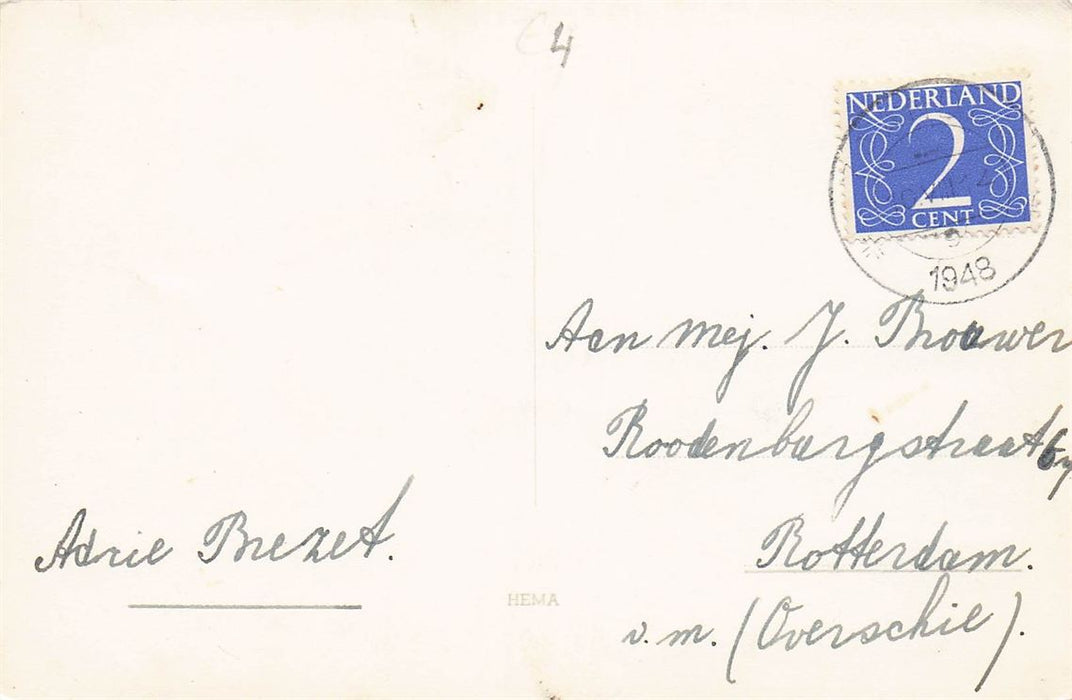 4
NEDERLAND
2
CENT
1948
Aan Mej. J. Brouwer
Roodenburgstraat
Rotterdam.
v.m. (Overschie).
Adrie Brezet.
HEMA